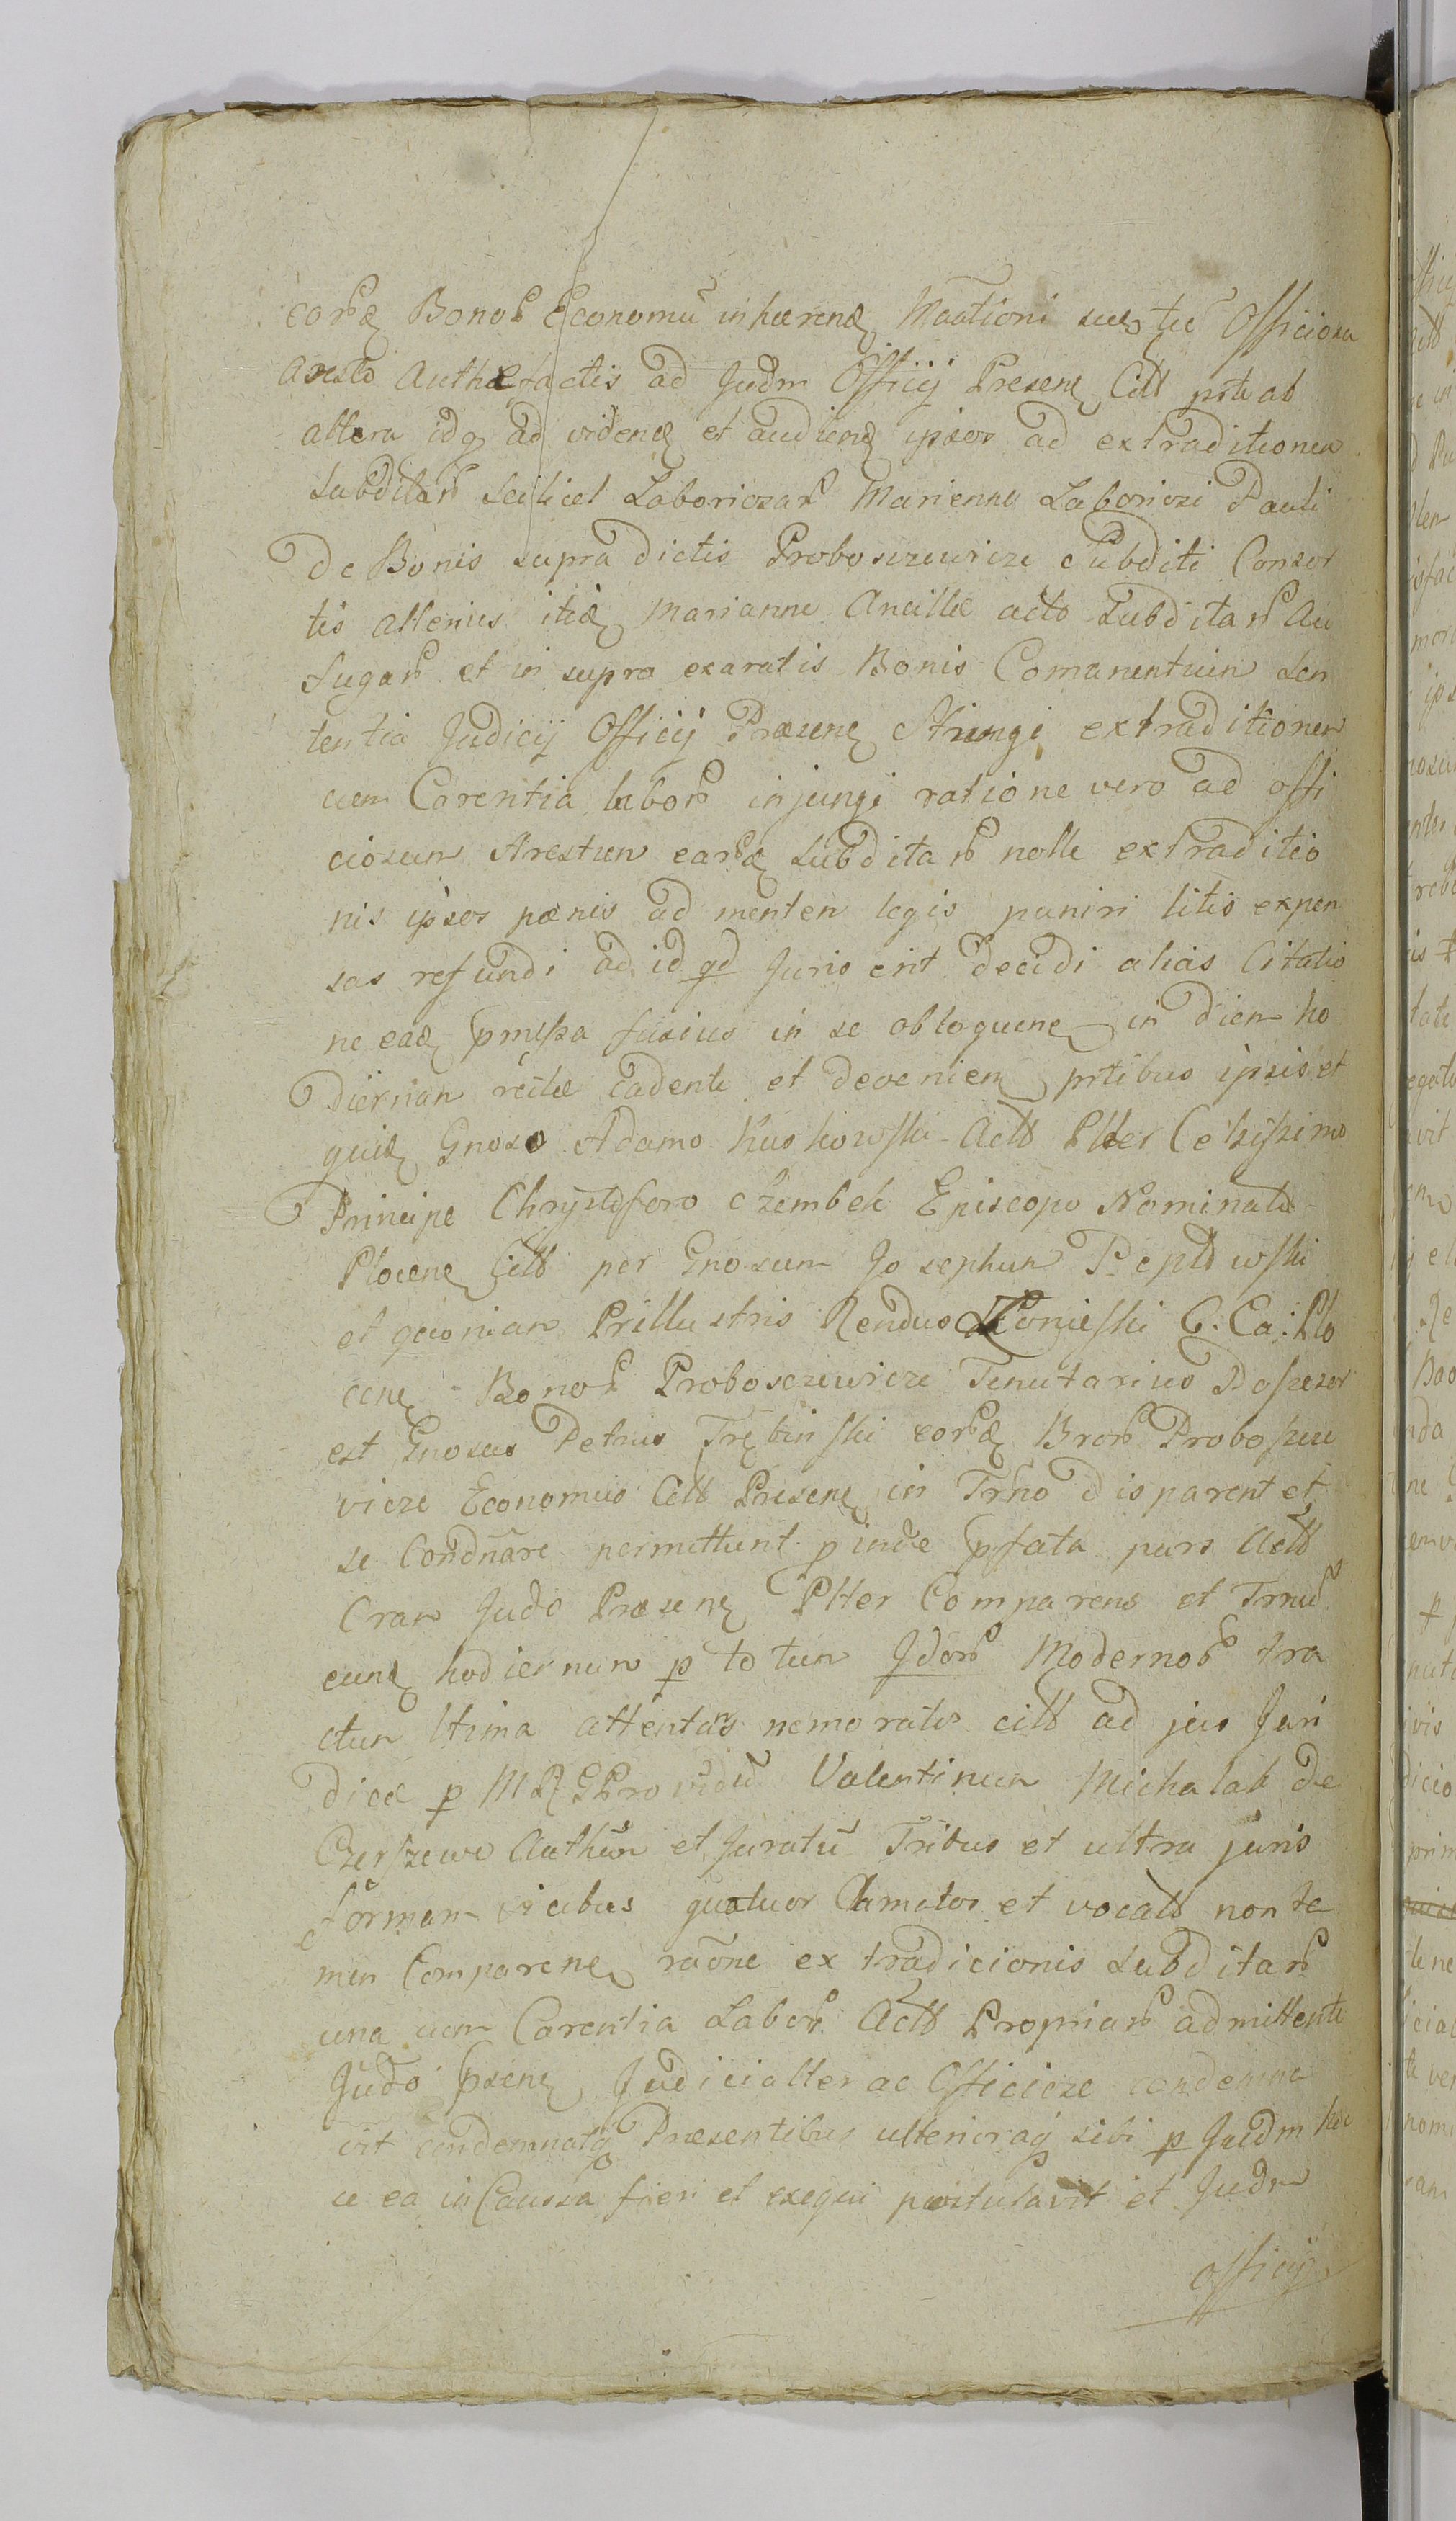 eorq̃ Bonoꝝ Economũ inhærenꝫ Maationi seu tũ Officiosa
Aresto Authæ factis ad Judm Officij Presenꝫ Citt prte ab
altera idq ad videnꝫ et audienꝫ ipsos ad extraditionem
Subditarꝫ Scilicet Laboriosarꝫ Marienne Laboriosi Pauli
De Bonis supra dictis Proboszczewicze Subditi Consor
tis alterius itidꝫ Marianne Ancillæ acto Subditarꝫ Au
fugarꝫ et in supra exaratis Bonis Comanentium Sen
tentia Judicij Officij Præsenꝫ Atrungi extraditionem
cum Carentia laborꝫ injungi ratione vero ad offi
ciosum Arestum earꝫ Subditarꝫ nolle extraditio
nis ipsos pœnis ad mentem legis puniri litis expen
sas refundi ad id qd Juris erit decidi alias Citatio
ne eadꝫ pmissa fusius in se obloquenꝫ in diem ho
Diernam recte cadente et deveniem prtibus ipsis et
quidꝫ Gnoso Adamo Kuskowski Actt Plter Celsissimo
Principe Chrystoforo Szembek Episcopo Nominato
Plocenꝫ Citt per Gnosum Josephum Peplowski
et qcionian Prillustris Rendus Konieski C. Ca: Plo
cenꝫ Bonoꝝ Proboszczewicze Tenutarius Possessor
est Gnosus Petrus Trębinski eorꝫ Bnorꝫ Probosze
wicze Economus Citt Presenꝫ in Trno disparent et
se Condnare permittunt pinde pfata pars Actt
Cram Judo Præsenꝫ Plter Comparens et Trnũ
cunꝫ hodiernum p totum Jdorꝫ Modernoꝝ tra
ctum ltima attentans nemorato citt ad jus Juri
dice p MRG Providũ Valentinum Michalak de
Czerszewo Authũm et Juratũ Tribus et ultra juris
formam vicibus quatuor Clamatos et vocatt non ta
men Comparenꝫ raõne extradicionis Subditarꝫ
una cum Carentia Laborꝫ Actt Propriarꝫ admittente
Judo psenꝫ Judicialter ac Officieze condemna
vit condemnatq Præsentibus ulterioraq sibi p Judm hoc
ce ea in Caussa fieri et exequi postulavit et Judm
officij